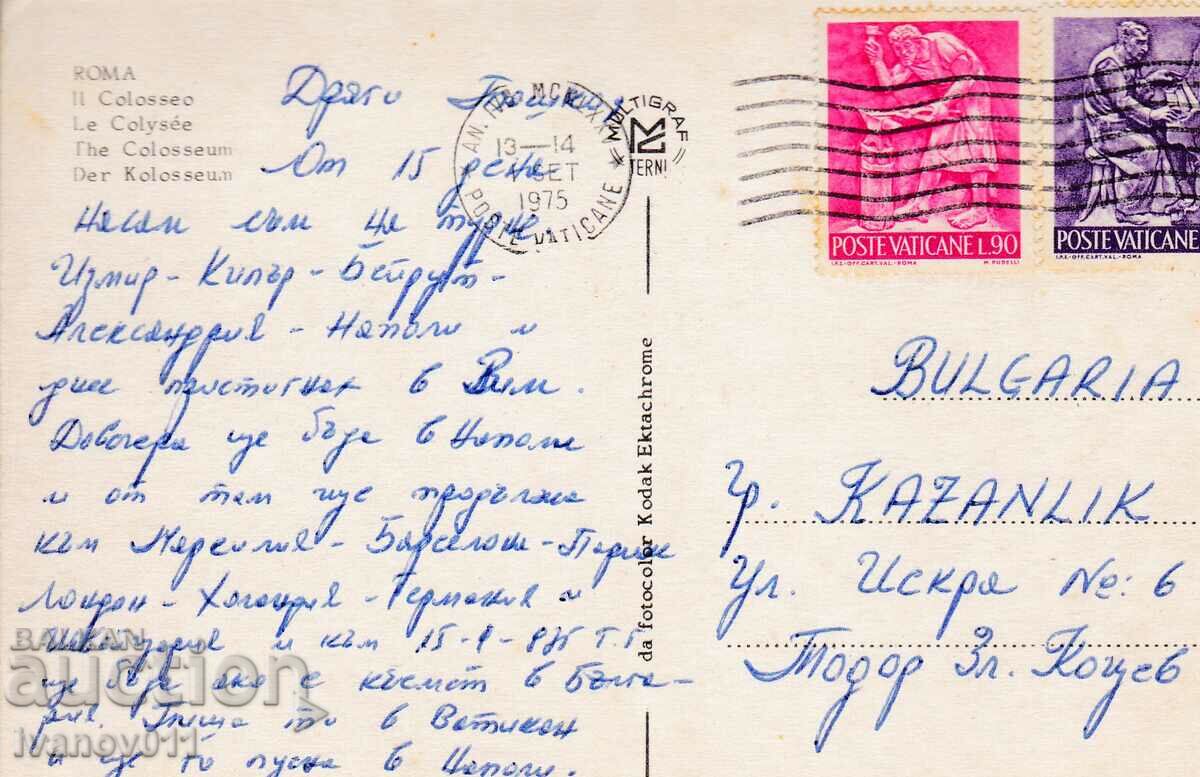 ROMA
Il Colosseo
Le Colysée
The Colosseum
Der Kolosseum
Драги
От 15 дена
съм на турне
Измир - Кипър - Бейрут -
Александрия - Наполи и
днес пристигнах в Рим.
Довечера ще бъда в Наполи
и от там ще продължа
към Марсилия - Барселона - Париж
Лондон - Холандия - Германия и
и към 15-9-975 т.г.
ще бъда ако е късмет в Бълга-
рия. Пиша ти в Ватикан
и ще го пусна в Наполи.
13-14
SET
1975
POSTE VATICANE
MULTIGRAF
TERNI
da fotocolor Kodak Ektachrome
POSTE VATICANE L.90
I.P.S.-OFF.CART.VAL.-ROMA
M. RUDELLI
POSTE VATICANE
I.P.S.-OFF.CART.VAL.-ROMA
BULGARIA
Гр. KAZANLIK
Ул. Искра No: 6
Тодор Зл. Коцев
BALKAN
auction
ivanov011